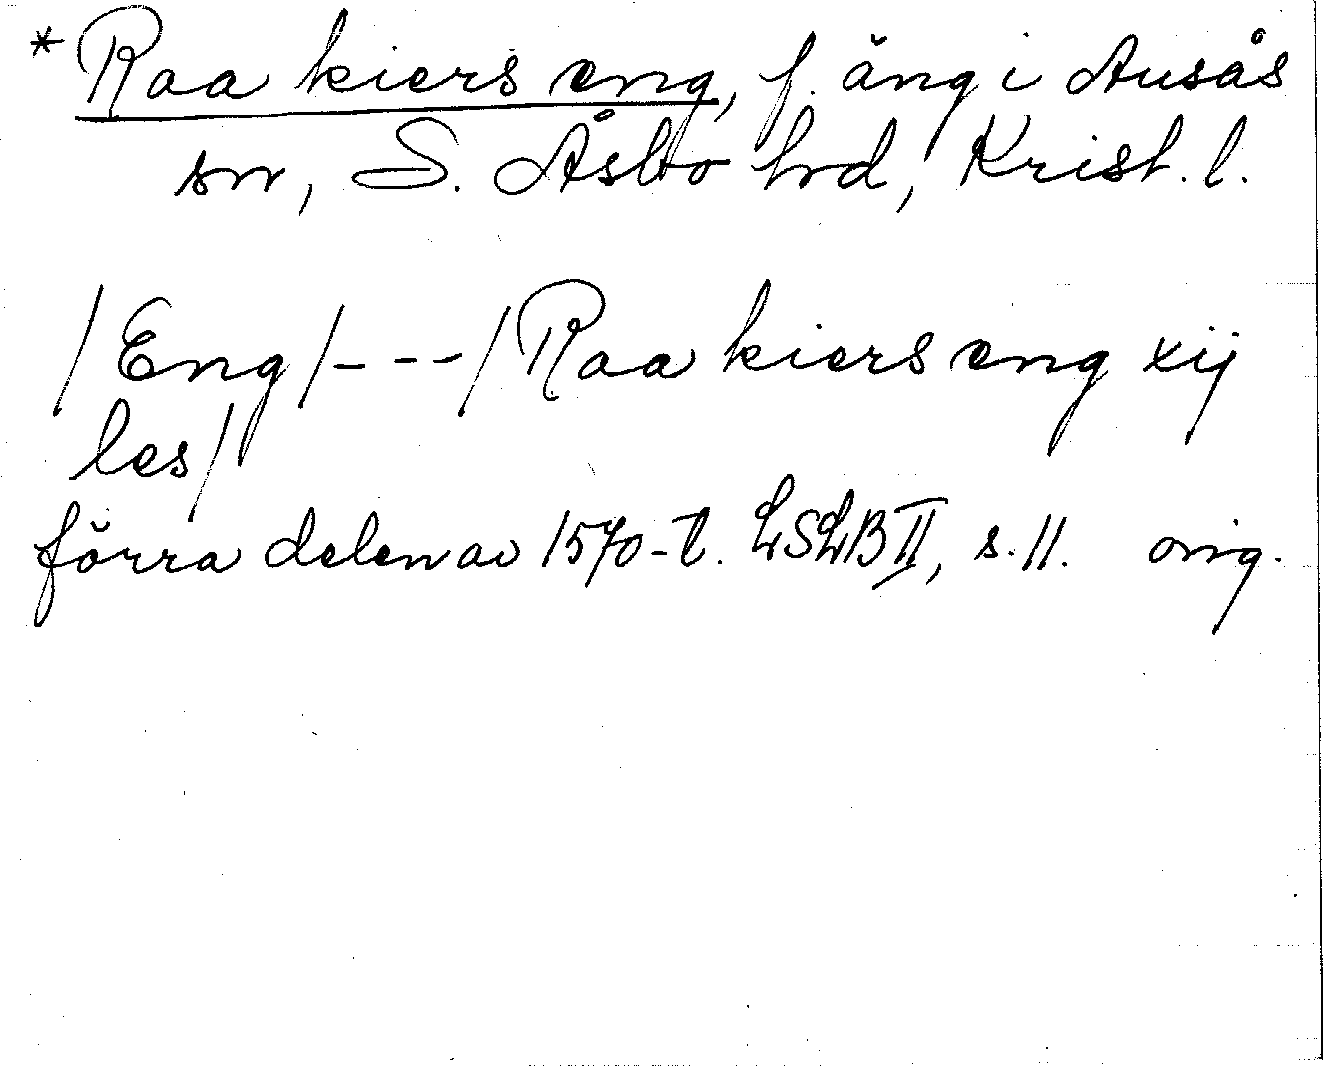 *Raa kiers eng, f. äng i Ausås
sn, S. Åsbo hrd, Krist. l.
/Eng/---/Raa kiers eng xij
les/
förra delen av 1570-t. LSLB II, s. 11. orig.